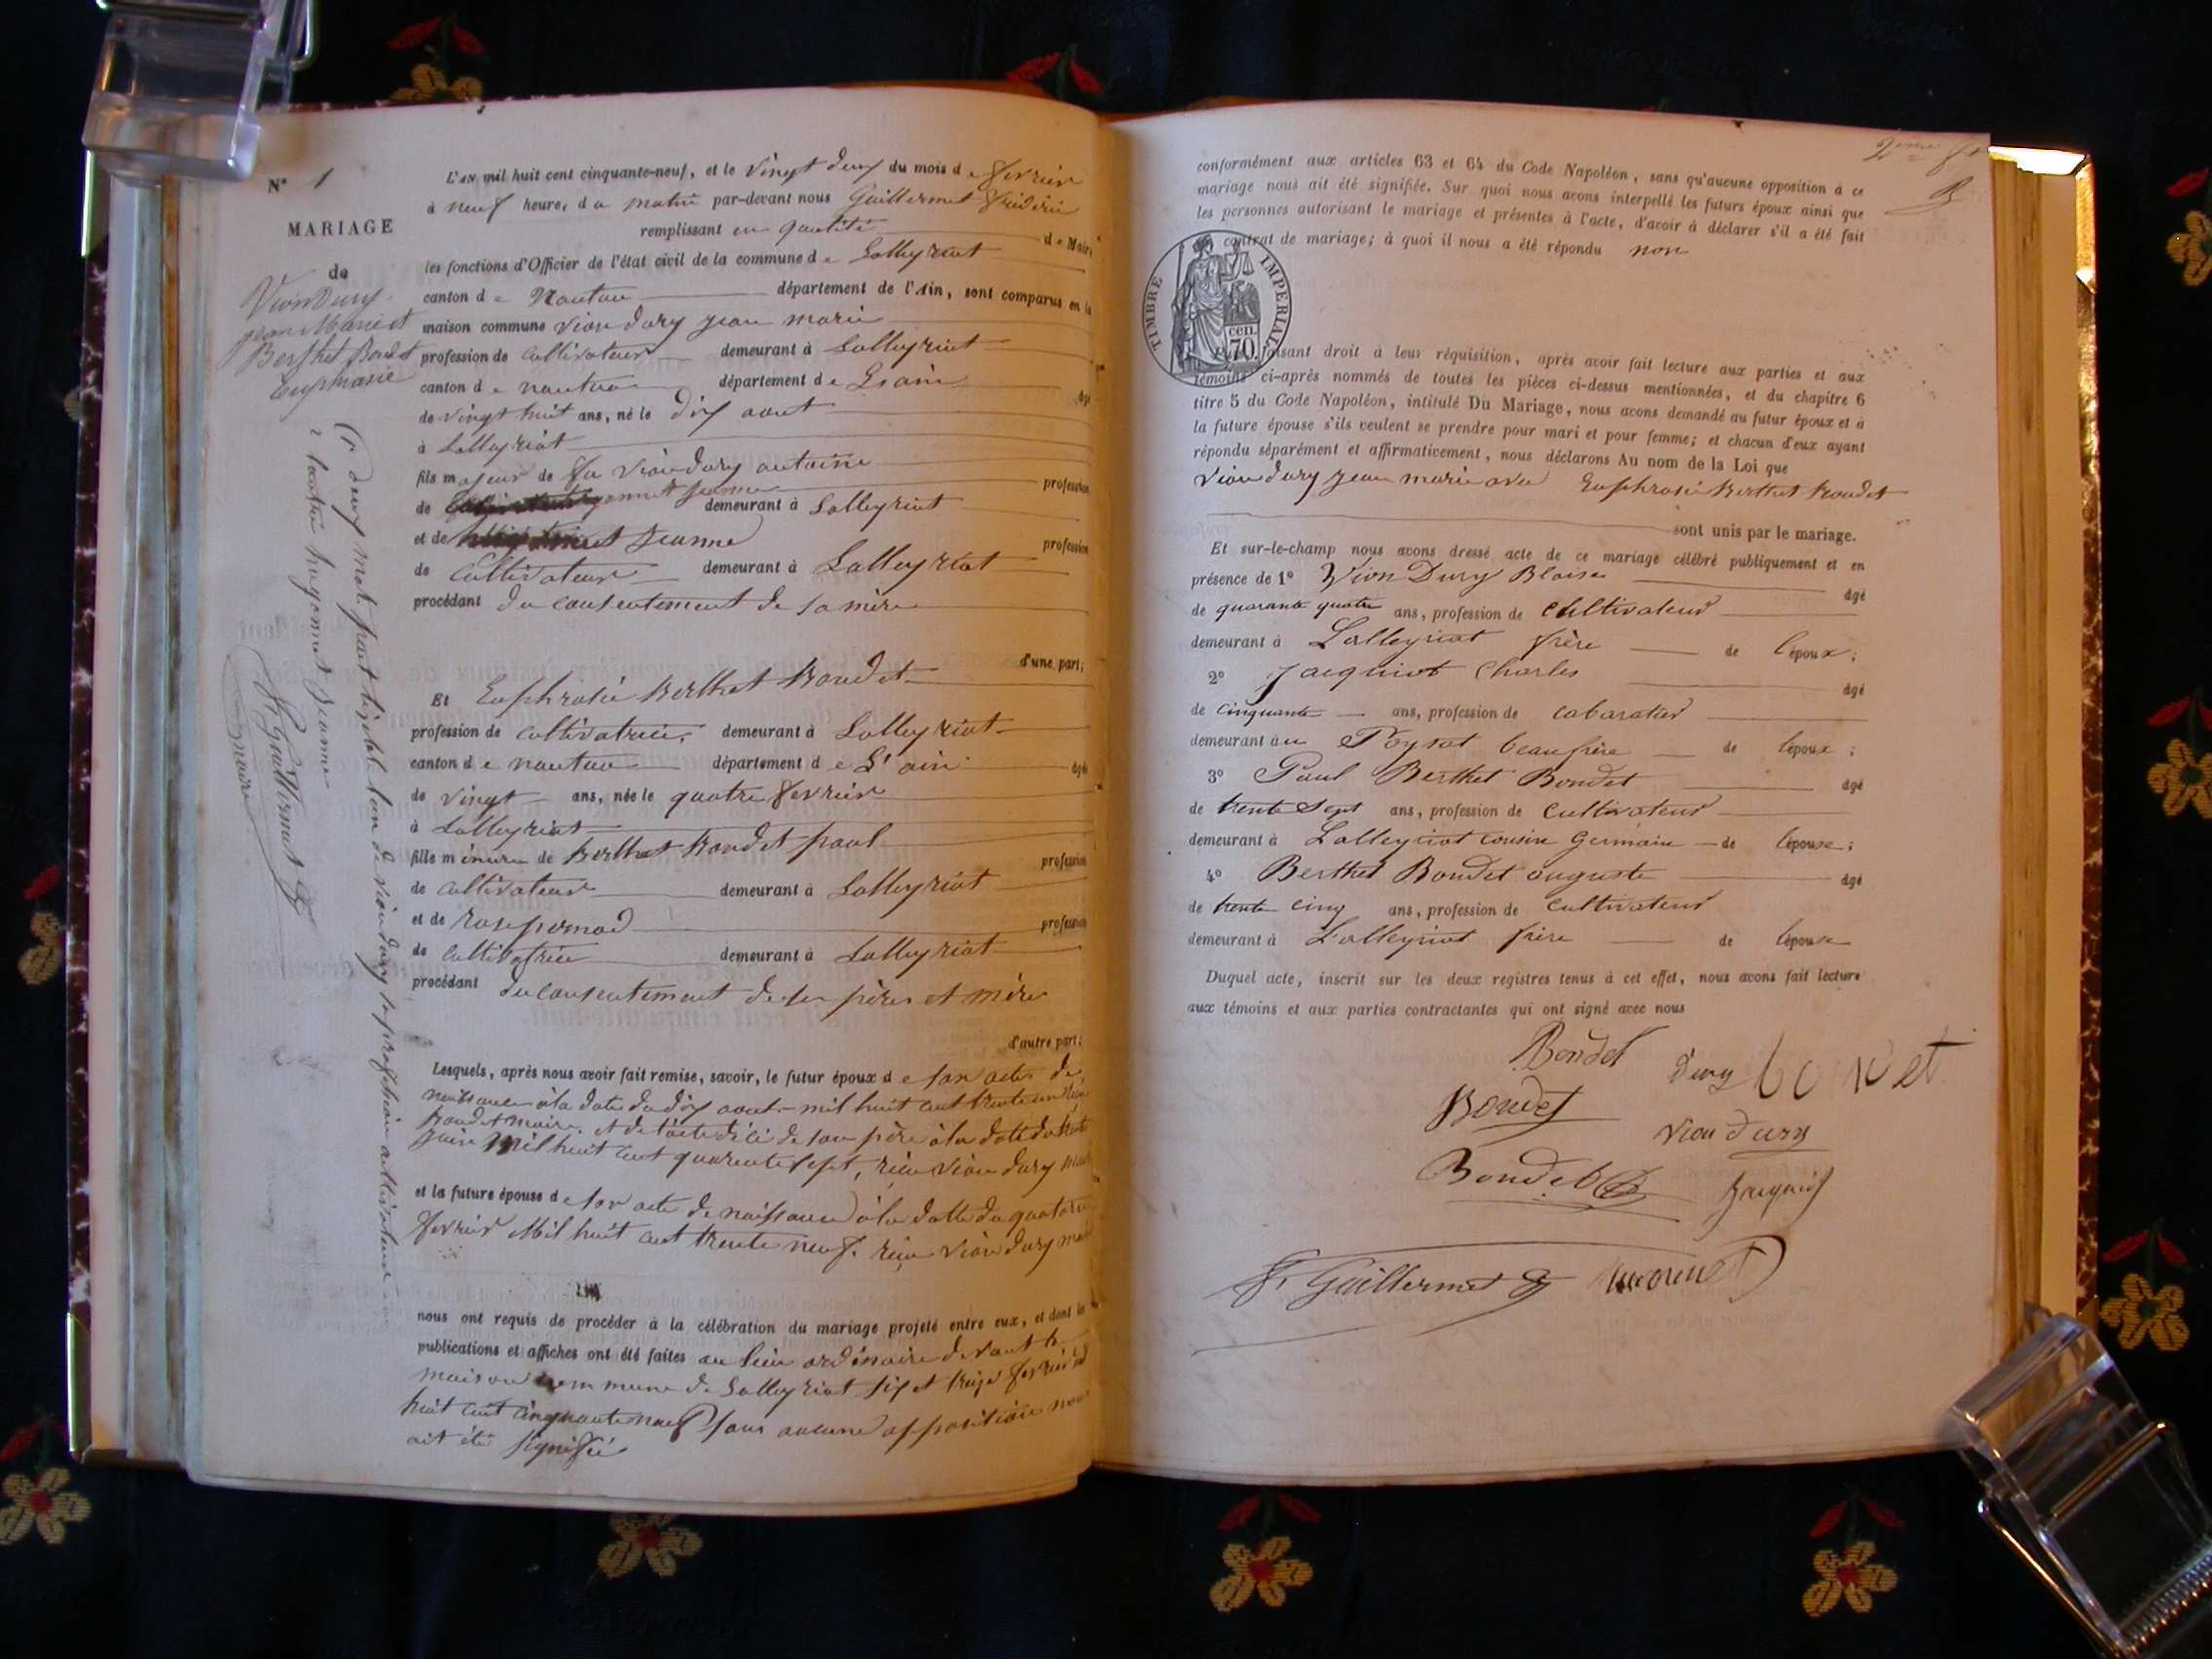 N° 1
MARIAGE
de
Vion Dury
jean Marie et
Berthet Bondet
Euphrasie
L'AN mil huit cent cinquante-neuf, et le vingt deux du mois de fevrier
à neuf heure, du matin par-devant nous Guillermet frédéric
remplissant en qualité de Maire
les fonctions d'Officier de l'état civil de la commune de Lalleyriat
canton de Nantua département de l'Ain, sont comparus en la
maison commune vion dury jean marie
profession de cultivateur demeurant à Lalleyriat
canton de nantua département de L'ain âgé
de vingt huit ans, né le dix aout
à Lalleyriat
fils majeur de feu vion dury antoine profession
de jeanne demeurant à Lalleyriat
et de jeanne profession
de cultivateur demeurant à Lalleyriat
procédant du consentement de sa mère
d'une part;
Et Euphrasie Berthet Bondet
profession de cultivatrice demeurant à Lalleyriat
canton de nantua département de L'ain âgée
de vingt ans, née le quatre fevrier
à Lalleyriat
fille mineure de Berthet Bondet paul profession
de cultivateur demeurant à Lalleyriat
et de rose pernod profession
de cultivatrice demeurant à Lalleyriat
procédant du consentement de ses pères et mère
d'autre part;
Lesquels, après nous avoir fait remise, savoir, le futur époux de son acte de
naissance à la date du dix aout mil huit cent trente un
Bondet maire. et de l'acte décé de son père à la date du
juin Mil huit cent quarente sept, vion dury
et la future épouse de son acte de naissance à la datte du quatorze
fevrier Mil huit cent trente neuf. vion dury
nous ont requis de procéder à la célébration du mariage projeté entre eux, et dont les
publications et affiches ont été faites au lieu ordinaire devant la
maison commune de Lalleyriat six et treize fevrier mil
huit cent cinquante neuf sans aucune opposition nous
ait été signifié
deux mots illisible de vion dury profession cultivateur
hugonnet jeanne
F. Guillermet
maire
2ème
conformément aux articles 63 et 64 du Code Napoléon, sans qu'aucune opposition à ce
mariage nous ait été signifiée. Sur quoi nous avons interpellé les futurs époux ainsi que
les personnes autorisant le mariage et présentes à l'acte, d'avoir à déclarer s'il a été fait
contrat de mariage; à quoi il nous a été répondu non
TIMBRE IMPERIAL
70 cen.
faisant droit à leur réquisition, après avoir fait lecture aux parties et aux
témoins ci-après nommés de toutes les pièces ci-dessus mentionnées, et du chapitre 6
titre 5 du Code Napoléon, intitulé Du Mariage, nous avons demandé au futur époux et à
la future épouse s'ils veulent se prendre pour mari et pour femme; et chacun d'eux ayant
répondu séparément et affirmativement, nous déclarons Au nom de la Loi que
vion dury jean marie avec Euphrasie Berthet Bondet
sont unis par le mariage.
Et sur-le-champ nous avons dressé acte de ce mariage célébré publiquement et en
présence de 1° Vion Dury Blaise âgé
de quarante quatre ans, profession de cultivateur
demeurant à Lalleyriat frère de l'époux;
2° Jacquiot Charles âgé
de cinquante ans, profession de cabaratier
demeurant au Poyzat beaufrère de l'époux;
3° Paul Berthet Bondet âgé
de trente sept ans, profession de cultivateur
demeurant à Lalleyriat cousin Germain de l'épouse;
4° Berthet Bondet auguste âgé
de trente cinq ans, profession de cultivateur
demeurant à Lalleyriat frère de l'épouse
Duquel acte, inscrit sur les deux registres tenus à cet effet, nous avons fait lecture
aux témoins et aux parties contractantes qui ont signé avec nous
Bondet dury bonet
Bondet vion dury
Bondet Jacquiot
F. Guillermet